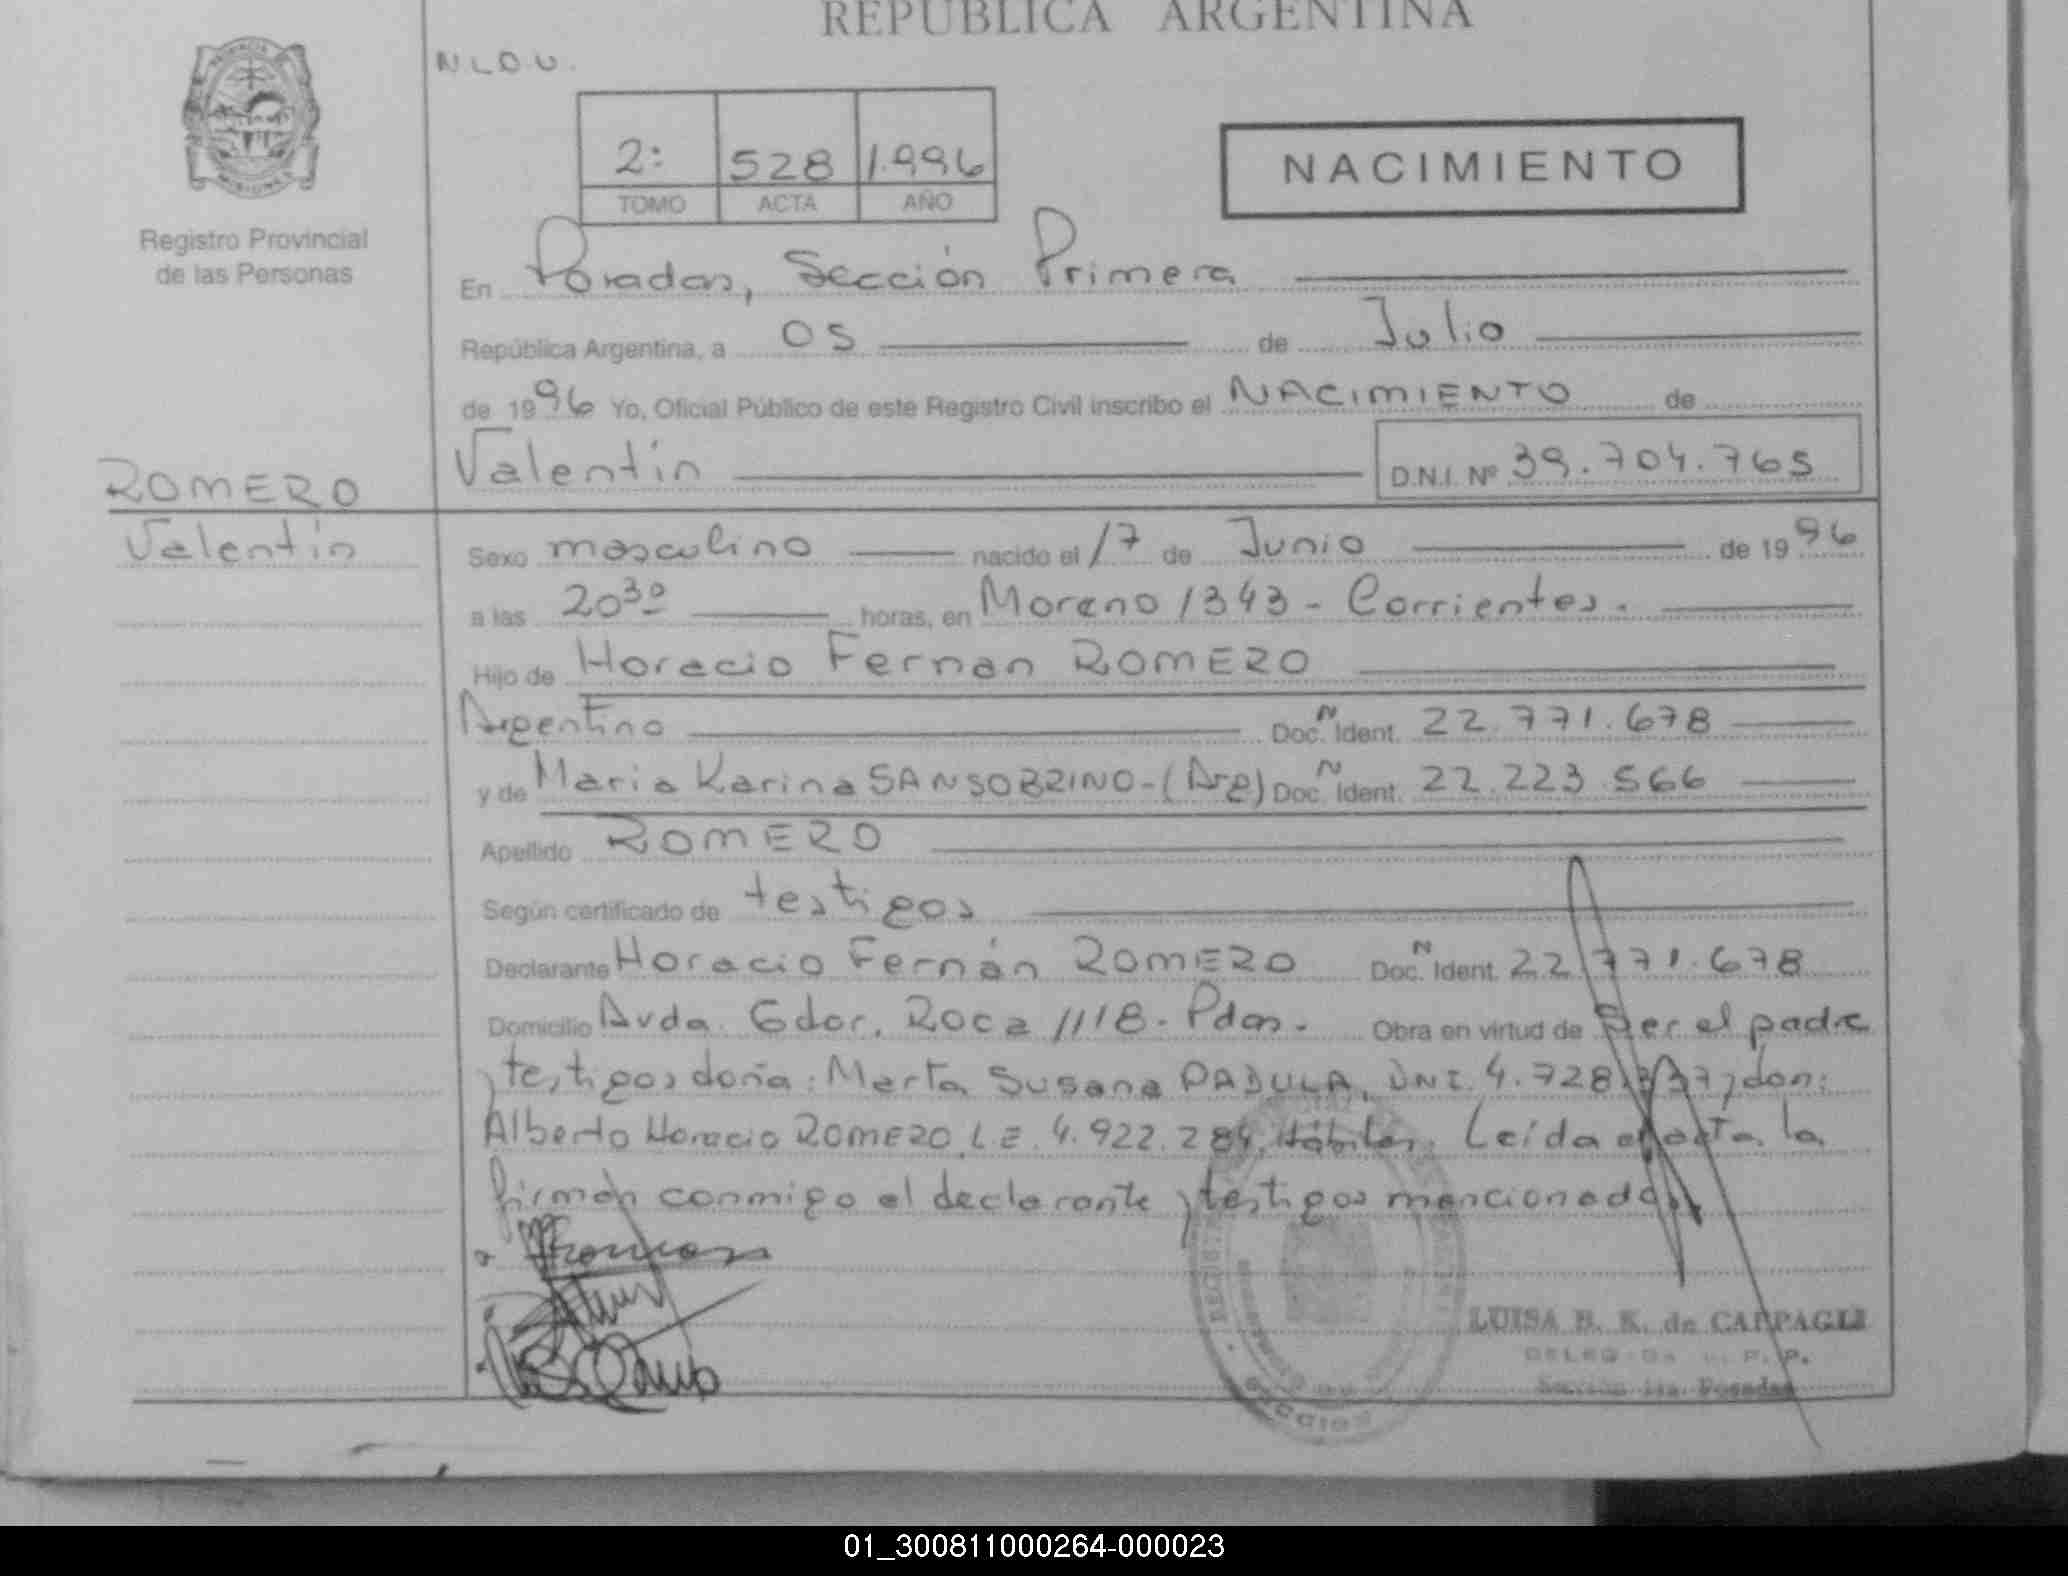 REPUBLICA ARGENTINA
N.L.D.U.
2: 528 1.996
TOMO ACTA AÑO
NACIMIENTO
MISIONES
Registro Provincial
de las Personas
En Posadas, Sección Primera
República Argentina, a 05 de Julio
de 1996 Yo, Oficial Público de este Registro Civil inscribo el NACIMIENTO de
Valentín D.N.I. Nº 39.704.765
ROMERO
Valentín
Sexo masculino nacido el 17 de Junio de 1996
a las 20³⁰ horas, en Moreno 1343 - Corrientes.
Hijo de Horacio Fernan ROMERO
Argentino Doc. N Ident. 22.771.678
y de Maria Karina SANSOBRINO - (Arg) Doc. N Ident. 22.223.566
Apellido ROMERO
Según certificado de testigos
Declarante Horacio Fernán ROMERO Doc. N Ident. 22.771.678
Domicilio Avda. Gdor. Roca 1118 - Pdas. Obra en virtud de Ser el padre
y testigos doña: Marta Susana PADULA, DNI. 4.728. y don:
Alberto Horacio ROMERO, L.E. 4.922.284, Hábiles. Leída el acta, la
firman conmigo el declarante y testigos mencionados
LUISA B. K. de CAPPAGLI
Sección 1ra. Posadas
01_300811000264-000023